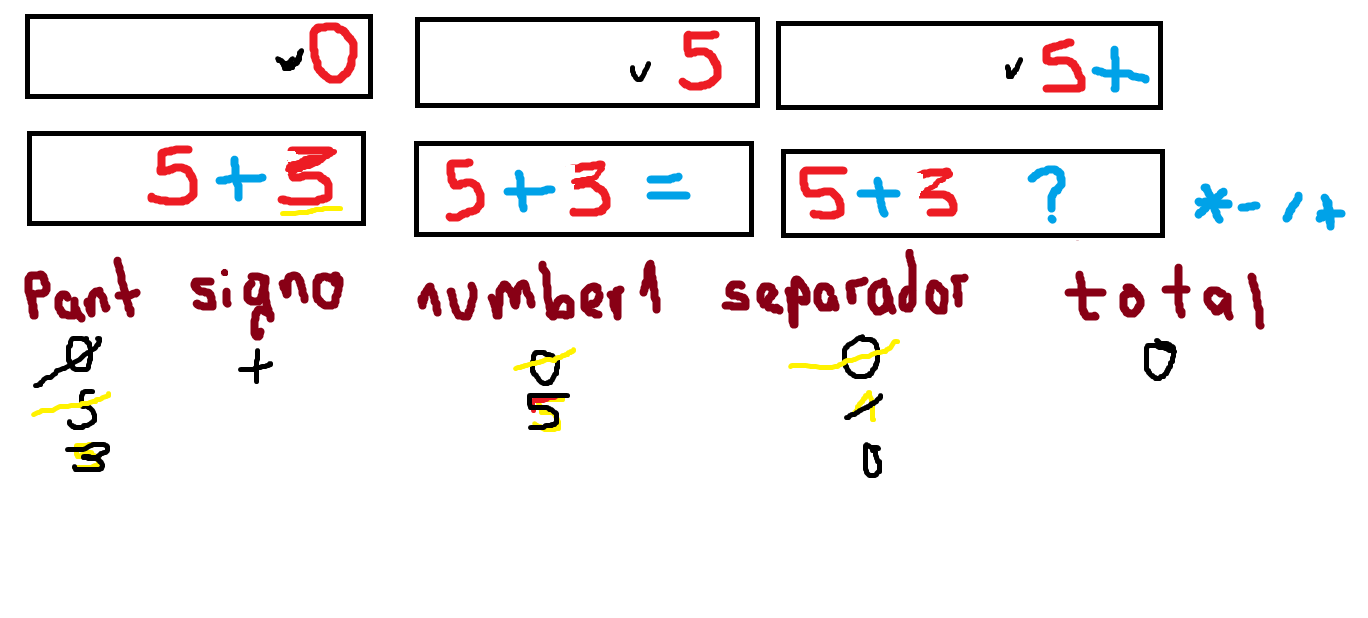 0 5 5+
5+3 5+3= 5+3 ? *-/+
Pant signo number1 separador total
0 + 0 0 0
5 5 1
3 0